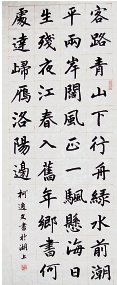 客路青山下行舟綠水前潮
平兩岸闊風正一颿懸海日
生殘夜江春入舊年鄉書何
處達歸雁洛陽邊
柯書於湖上